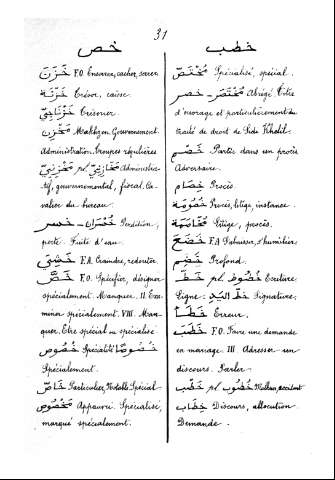 31
خص
خَزَّنَ F.O. Enserrer, cacher, serrer.
خَزْنَة Trésor, caisse.
خَزْنَاجِي Trésorier
مَخْزِن Makhzen, Gouvernement.
Administration. Troupes régulières
مَخْزِنِي pl. مَخَازِنِي Administra-
tif, gouvernemental, fiscal. Ca-
valier du bureau.
خُسْرَان - خسر Perdition,
perte. Fuite d'eau.
خَشِيَ F.A. Craindre, redouter.
خَصَّ F.O. Spécifier, désigner
spécialement. Manquer. II. Exa-
miner spécialement. VIII. Man-
quer. Être spécial ou spécialisé
خُصُوص Spécialité خُصُوصًا
Spécialement.
خَاصّ Particulier, Notable. Spécial
مَخْصُوص Appauvri. Spécialisé,
marqué spécialement.
خطب
مُخْتَصّ Spécialisé, spécial.
مُخْتَصَر - خصر Abrégé. Titre
d'ouvrage et particulièrement du
traité de droit de Sidi Khelil.
خَصْم Partie dans un procès
Adversaire.
خِصَام Procès
خُصُومَة Procès, litige, instance.
مُخَاصَمَة Litige, procès.
خَضَعَ F.A. S'abaisser, s'humilier
Profond.
خَطّ pl. خُطُوط Ecriture
Ligne. خَطّ اليَد Signature.
خَطَأ Erreur.
خَطَبَ F.O. Faire une demande
en mariage. III Adresser un
discours. Parler
خَطْب pl. خُطُوب Malheur, accident
خِطَاب Discours, allocution.
Demande.